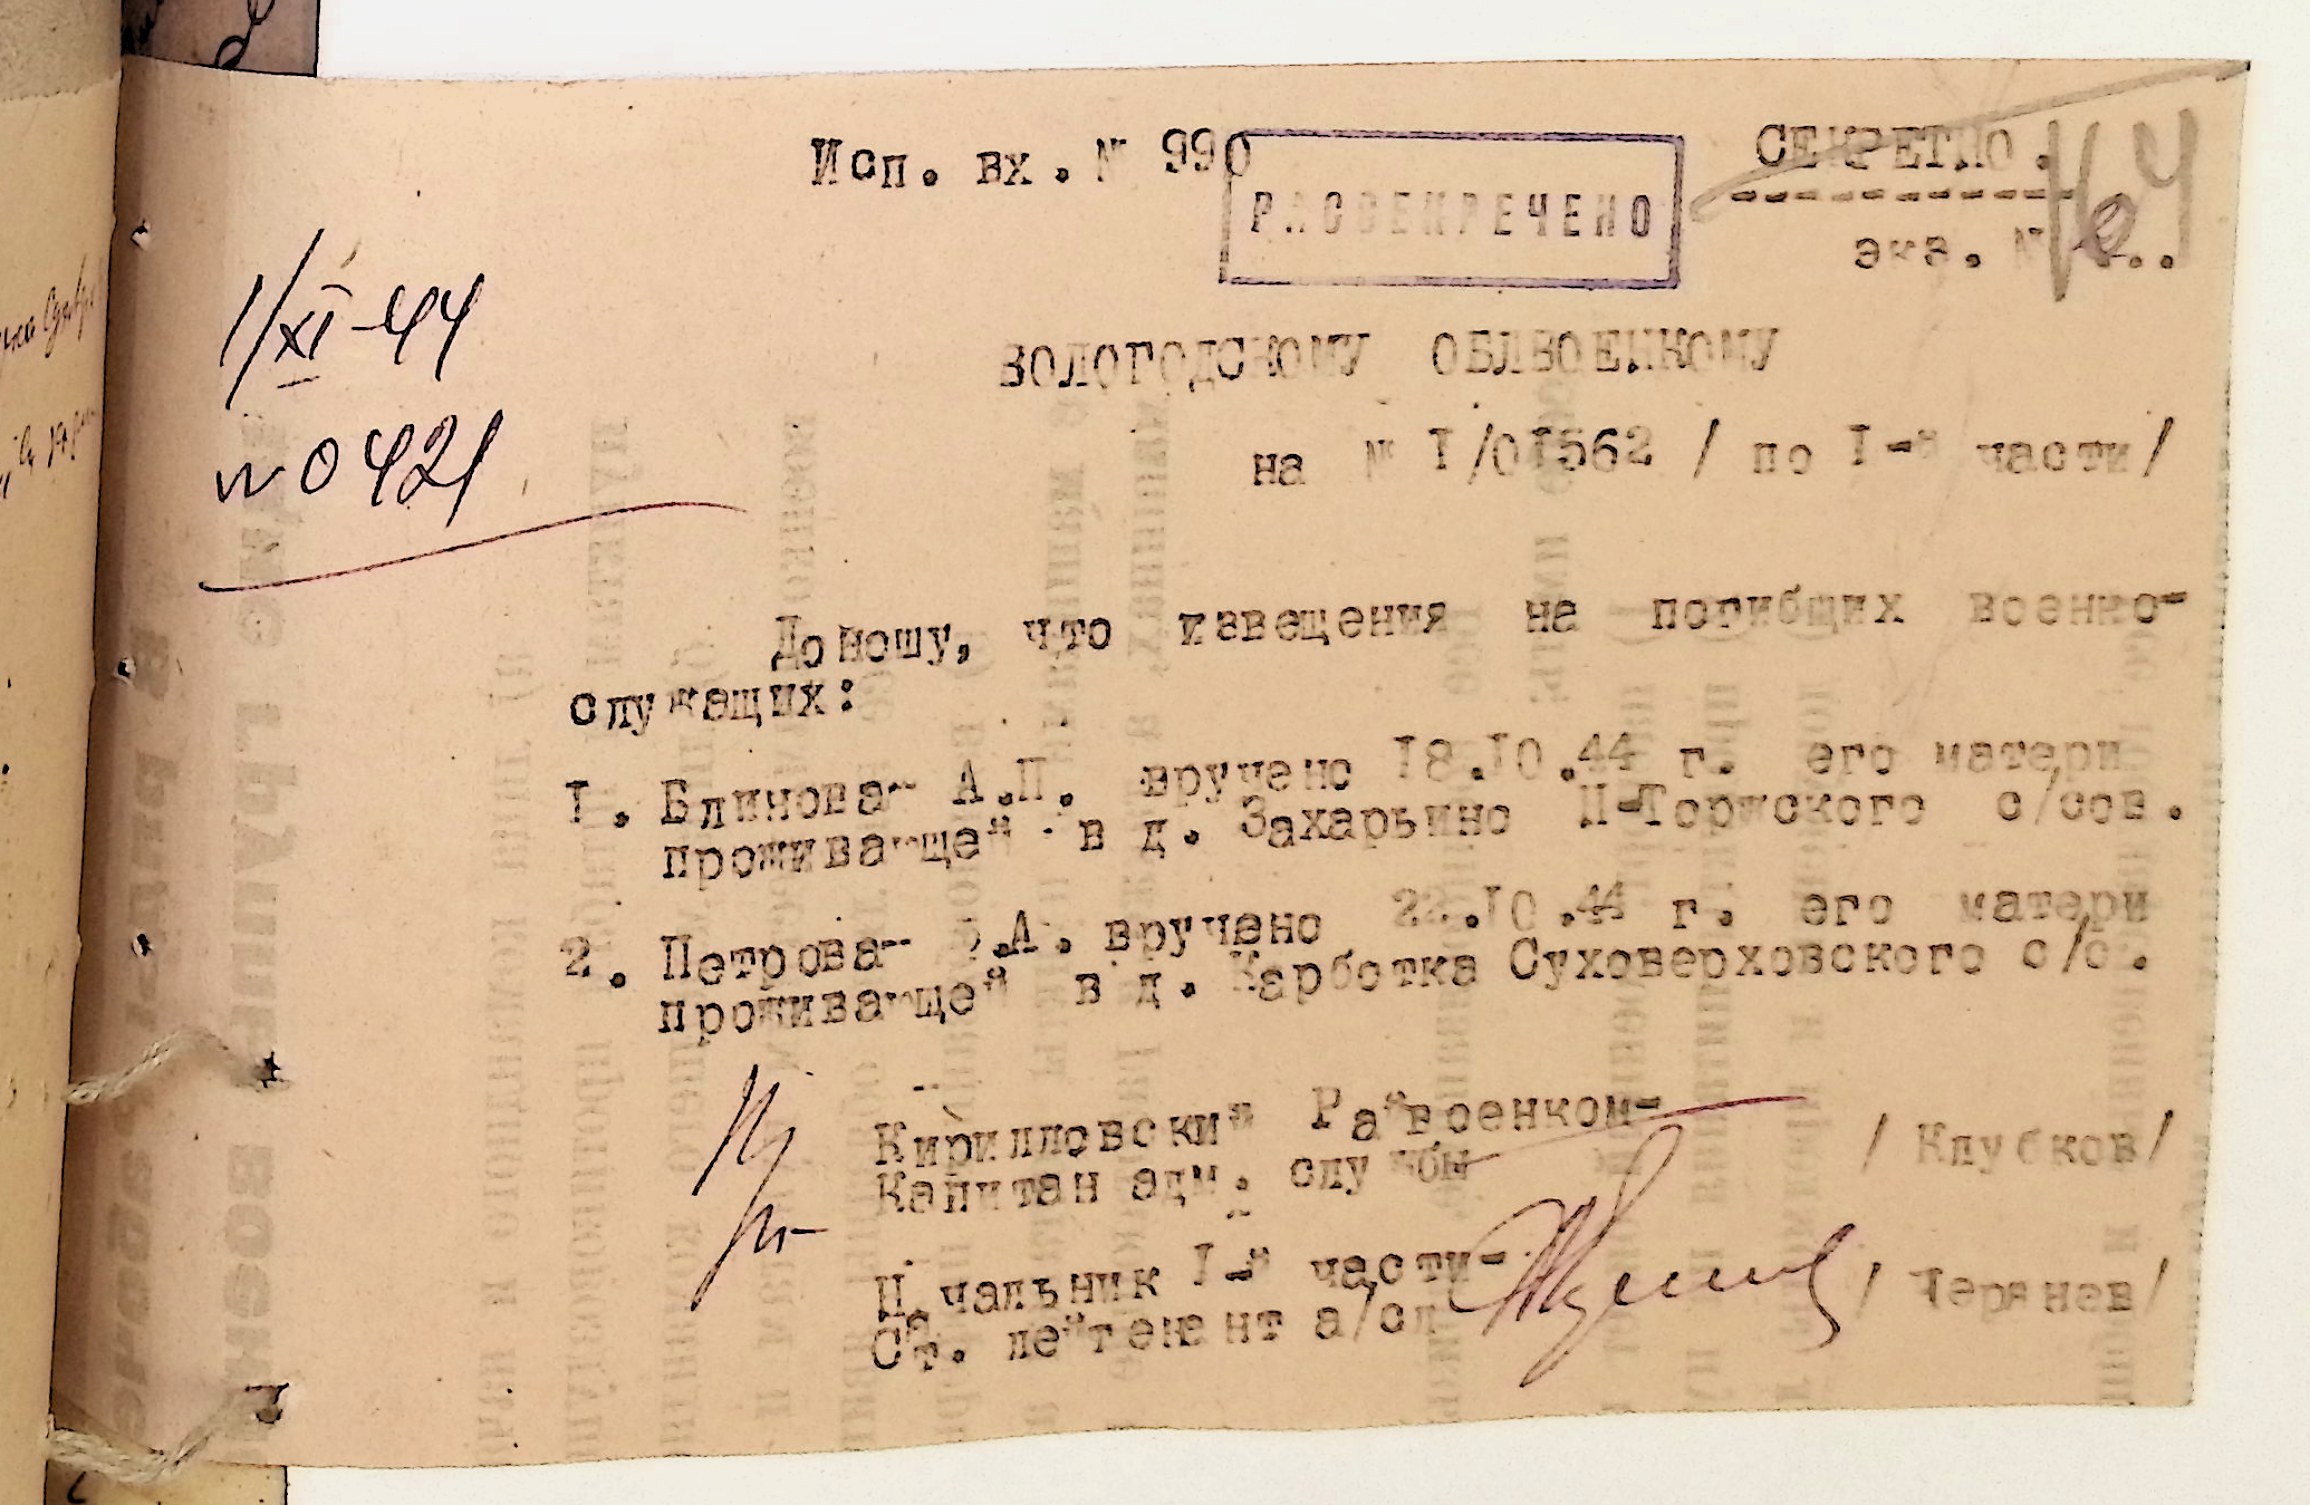 Исп. вх. № 990
РАССЕКРЕЧЕНО
СЕКРЕТНО.
экз. №
1/XI-44
№ 0421
ВОЛОГОДСКОМУ ОБЛВОЕНКОМУ
на № I/01562 / по I-й части/
Доношу, что извещения на погибщих военно-
служащих:
I. Блинова- А.П. вручено 18.10.44 г. его матери
проживающей в д. Захарьино П-Торжского с/сов.
2. Петрова- А. вручено 22.10.44 г. его матери
проживающей в д. Карботка Суховерховского с/с.
Кирилловский Райвоенком-
Капитан адм. службы / Клубков/
Начальник I-й части-
Ст. лейтенант а/сл / Терянев/